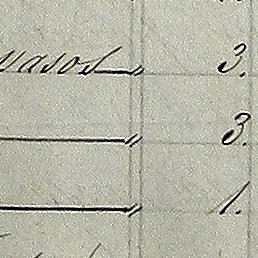 vasos — " 3.
— " 3.
— " 1.